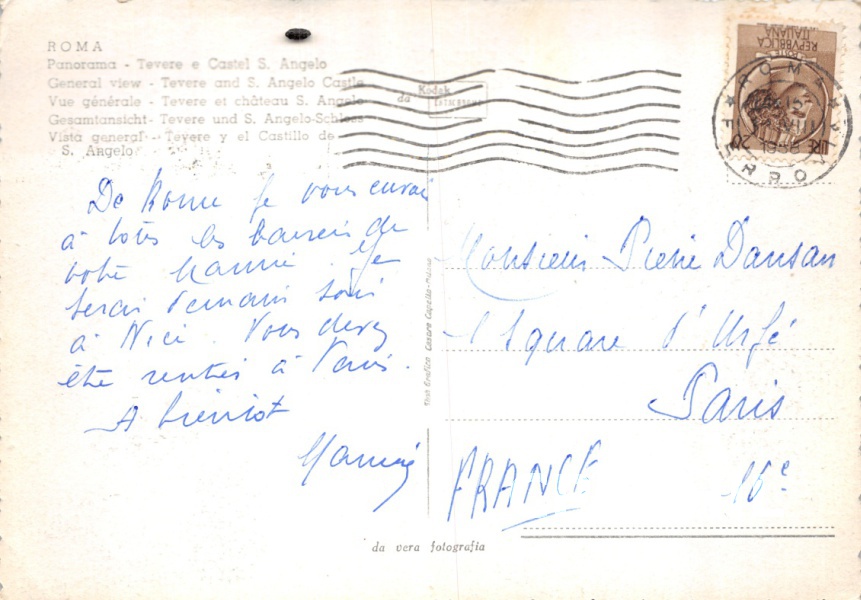 ROMA
Panorama - Tevere e Castel S. Angelo
General view - Tevere and S. Angelo Castle
Vue générale - Tevere et château S. Angelo
Gesamtansicht - Tevere und S. Angelo-Schloss
Vista general - Tevere y el Castillo de
S. Angelo
da Kodak
REPVBBLICA
ITALIANA
LIRE 20
ROMA
FERRO
De Rome je vous envoi
à tous les baisers de
votre Mamie. Je
serai demain soir
à Nice. Vous devez
être rentrés à Paris.
A bientot
Mamie
Monsieur Pierre Dansan
1 Square d'Urfé
Paris
16e
FRANCE
Stab. Grafico Cesare Capello-Milano
da vera fotografia